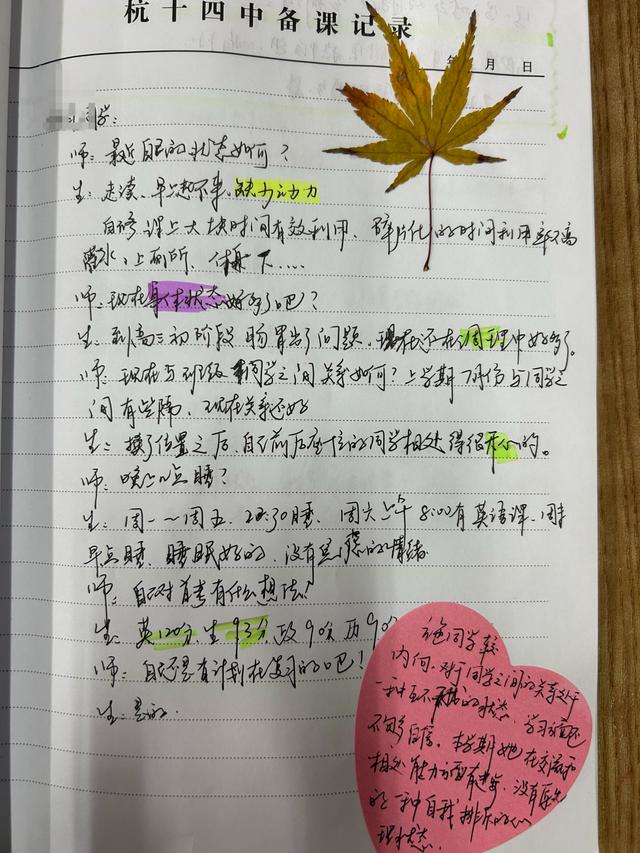 杭十四中备课记录
年 月 日
同学:
师:最近自己的状态如何?
生:走读、早上起不来,缺少动力
自修课上大块时间有效利用、碎片化的时间利用率不高
喝水,上厕所、
师:现在身体状态好多了吧?
生:到高三初阶段肠胃出了问题,现在还在调理中好多了。
师:现在与班级同学之间关系如何?上学期7月份与同学之
间有些 ,现在关系还好
生:换了位置之后,自己前后座位的同学相处得很开心的。
师:晚上几点睡?
生:周一~周五,22:30睡,周六上午8:00有英语课,周
早点睡,睡眠好的,没有焦虑的情绪
师:自己对首考有什么想法?
生:英120分,生93分,政90分历90
师:自己还是有计划在复习的吧!
生:是的.
同学较
内向,对于同学之间的关系处于
一种 的状态,学习方面也
不够自信,本学期她在交流和
相处能力方面有进步,没有原先
的一种自我排斥的心
理状态.